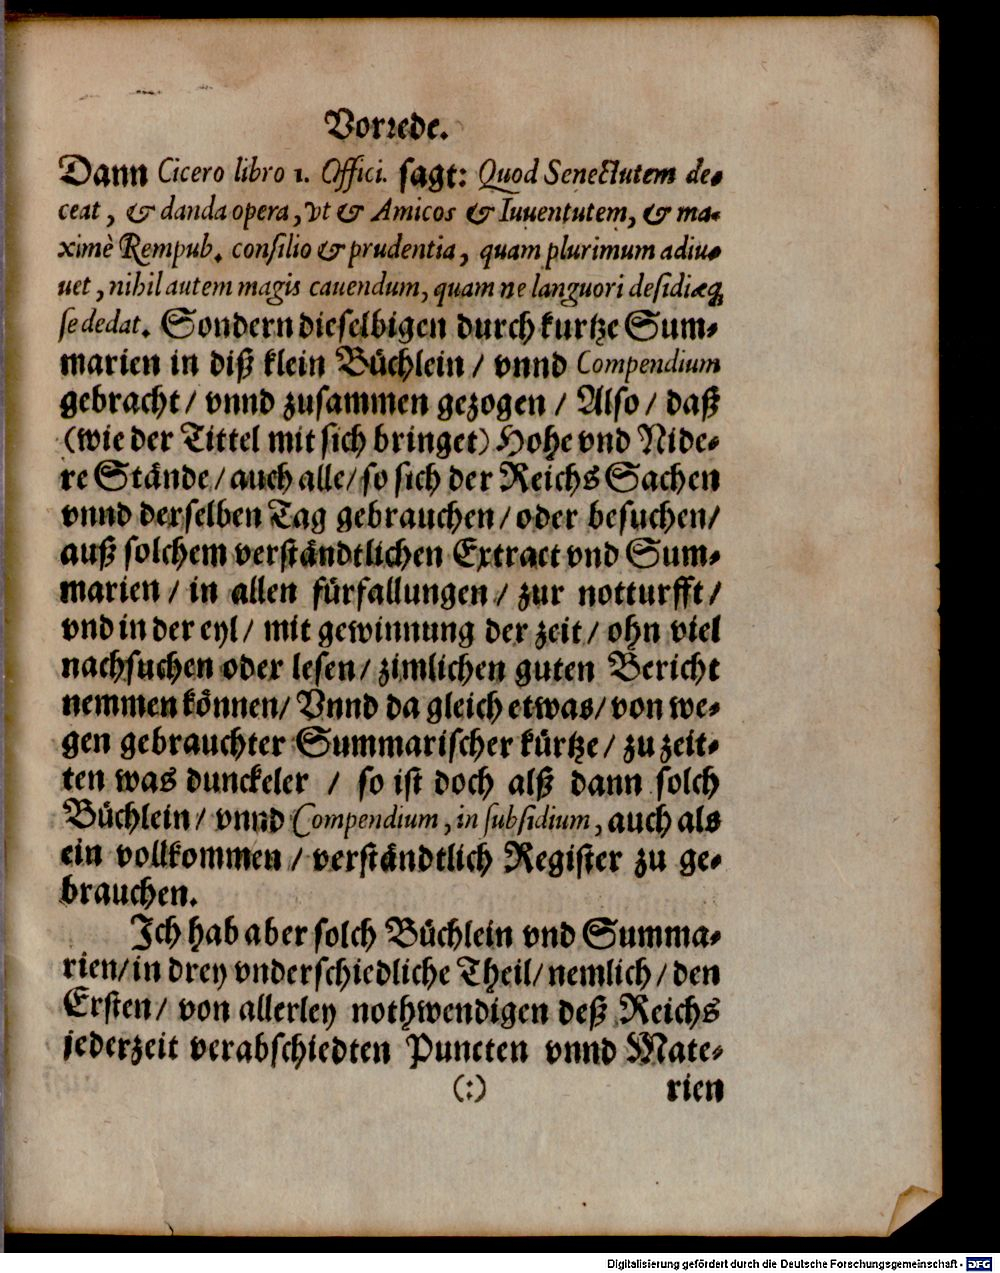 Vorrede.
Dann Cicero libro 1. Offici. sagt: Quod Senectutem de-
ceat, & danda opera, vt & Amicos & Iuuentutem, & ma-
ximè Rempub. consilio & prudentia, quam plurimum adiu-
uet, nihil autem magis cauendum, quam ne languori desidiæq;
se dedat. Sondern dieselbigen durch kurtze Sum-
marien in diß klein Büchlein / vnnd Compendium
gebracht / vnnd zusammen gezogen / Also / daß
(wie der Tittel mit sich bringet) Hohe vnd Nide-
re Stände / auch alle / so sich der Reichs Sachen
vnnd derselben Tag gebrauchen / oder besuchen /
auß solchem verständtlichen Extract vnd Sum-
marien / in allen fürfallungen / zur notturfft /
vnd in der eyl / mit gewinnung der zeit / ohn viel
nachsuchen oder lesen / zimlichen guten Bericht
nemmen können / Vnnd da gleich etwas / von we-
gen gebrauchter Summarischer kürtze / zu zeit-
ten was dunckeler / so ist doch alß dann solch
Büchlein / vnnd Compendium, in subsidium, auch als
ein vollkommen / verständtlich Register zu ge-
brauchen.
Ich hab aber solch Büchlein vnd Summa-
rien / in drey vnderschiedliche Theil / nemlich / den
Ersten / von allerley nothwendigen deß Reichs
jederzeit verabschiedten Puncten vnnd Mate-
(:) rien
Digitalisierung gefördert durch die Deutsche Forschungsgemeinschaft - DFG